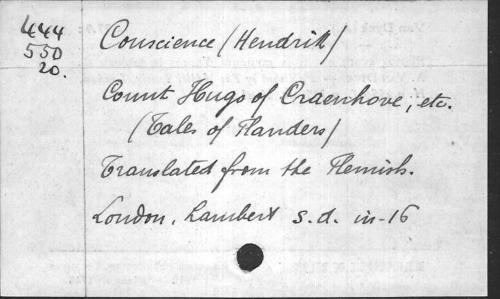 444
550
20.
Conscience (Hendrik)
Count Hugo of Craenhove, etc.
(Tales of Flanders)
Translated from the Flemish.
London, Lambert s.d. in-16